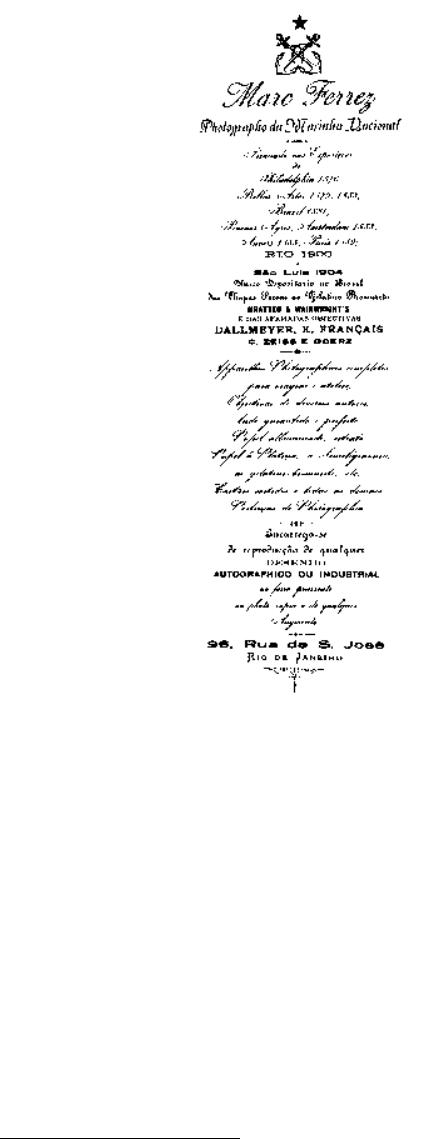 Marc Ferrez
Photographo da Marinha Nacional
Premiado nas Exposições
de
Philadelphia 1876
Bellas Artes 1879,
Brazil 1881,
Buenos Ayres, Amsterdam 1883,
Paris
RIO 1900
São Luis 1904
Unico Depositario no Brasil
das Chapas Seccas ao Gelatino Bromureto
WRATTEN & WAINWRIGHT'S
E DAS AFAMADAS OBJECTIVAS
DALLMEYER, H. FRANÇAIS
C. ZEISS E GOERZ
Apparelhos Photographicos completos
para viagem e atelier,
Objectivas de diversos autores,
tudo garantido e perfeito
Papel albuminado,
Papel á Platina,
ao gelatino-bromureto, etc.
Cartões e todos os demais
de Photographia
Encarrega-se
de reproducção de qualquer
DESENHO
AUTOGRAPHICO OU INDUSTRIAL
ao ferro prussiato
ou photo e de qualquer
Augmento
96, Rua de S. José
RIO DE JANEIRO